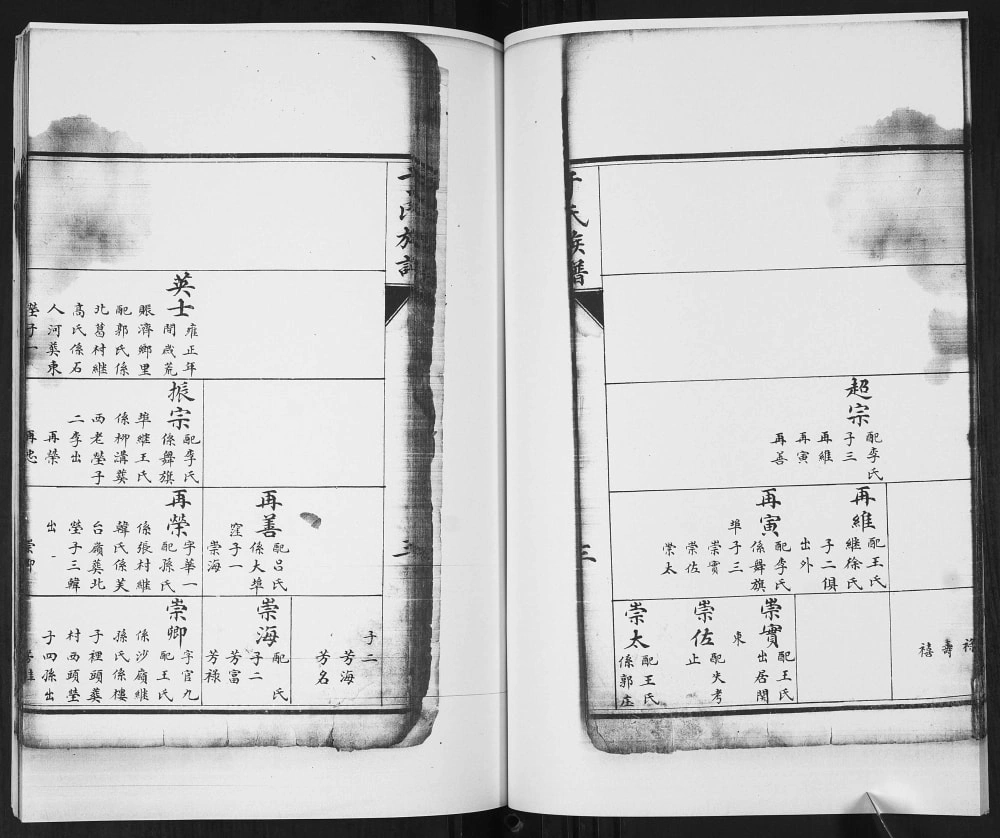 超宗
配李氏
子三
再維
再寅
再善
再維
配王氏
繼徐氏
子二俱
出外
再寅
配李氏
係舞旗
埠子三
崇實
崇佐
崇太
祿
壽
禧
崇實
配王氏
出居関
東
崇佐
配失考
止
崇太
配王氏
係郭庄
氏族譜
三
英士
雍正年
間歲荒
賬濟鄉里
配郭氏係
北葛村繼
高氏係石
人河葬東
塋子一
振宗
配李氏
係舞旗
埠繼王氏
係柳溝葬
西老塋子
二李出
再榮
再忠
再善
配呂氏
係大埠
窪子一
崇海
再榮
字華一
配孫氏
係張村繼
韓氏係芙
台嶺葬北
塋子三韓
出
崇卿
子二
芳海
芳名
崇海
配 氏
子二
芳富
芳祿
崇卿
字官九
配王氏
係沙嶺繼
孫氏係樓
子裡頭葬
村西頭塋
子四孫出